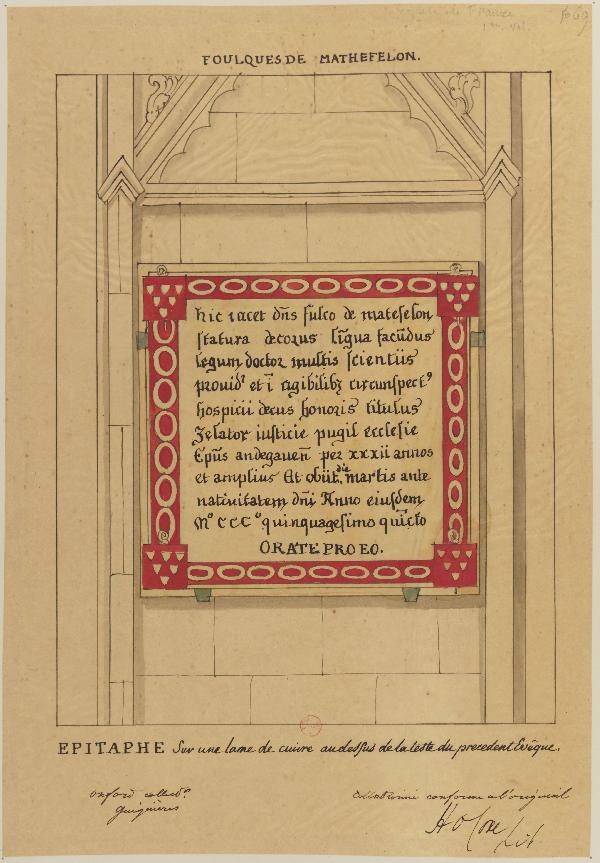 FOULQUES DE MATHEFELON.
hic iacet dn̄s fulco de matefelon
statura decorus līgua facūdus
legum doctor multis scientiis
prouidꝰ et ī agibilibȝ circunspectꝰ
hospicii decus honoris titulus
Zelator iusticie pugil ecclesie
Ep̄us andegauen̄ per xxxii annos
et amplius Et obiit die martis ante
natiuitatem dn̄i Anno eiusdem
M° CCC° quinquagesimo quīto
ORATE PRO EO.
EPITAPHE Sur une lame de cuivre au dessus de la teste du precedent Evêque.
oxford collect.
Gaignières
conforme a l'original